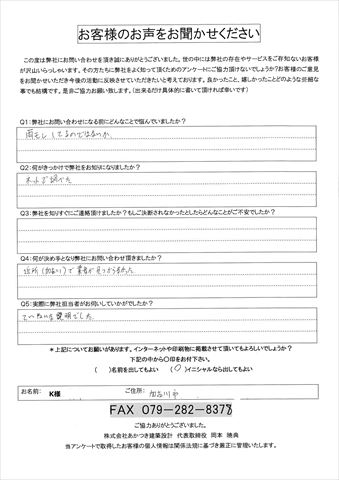 お客様のお声をお聞かせください
この度は弊社にお問い合わせを頂き誠にありがとうございました。世の中には弊社の存在やサービスをご存知ないお客様
が沢山いらっしゃいます。その方たちに弊社をよく知って頂くためのアンケートにご協力頂けないでしょうか?お客様のご意見
をお聞かせいただき今後の活動に反映させていただきたいと考えております。良かったこと、嬉しかったことどのような些細な
事でも結構です。是非ご協力お願い致します。(出来るだけ具体的に書いて頂ければ幸いです)
Q1:弊社にお問い合わせになる前にどんなことで悩んでいましたか?
雨モレしてるのではないか
Q2:何がきっかけで弊社をお知りになりましたか?
ネットで調べた
Q3:弊社を知りすぐにご連絡頂けましたか?もしご決断されなかったとしたらどんなことがご不安でしたか?
Q4:何が決め手となり弊社にお問い合わせ頂きましたか?
近所(加古川)で業者が見つかったから
Q5:実際に弊社担当者がお伺いしていかがでしたか?
ていねいな説明でした
*上記についてお願いがあります。インターネットや印刷物に掲載させて頂いてもよろしいでしょうか?
下記の中から〇印をお付け下さい。
( )名前を出してもよい (〇)イニシャルなら出してもよい
お名前: K様 ご住所: 加古川市
FAX 079-282-8377
ご協力ありがとうございました。
株式会社あかつき建築設計 代表取締役 岡本 暁典
当アンケートで取得したお客様の個人情報は関係法規に基づき厳正に管理いたします。